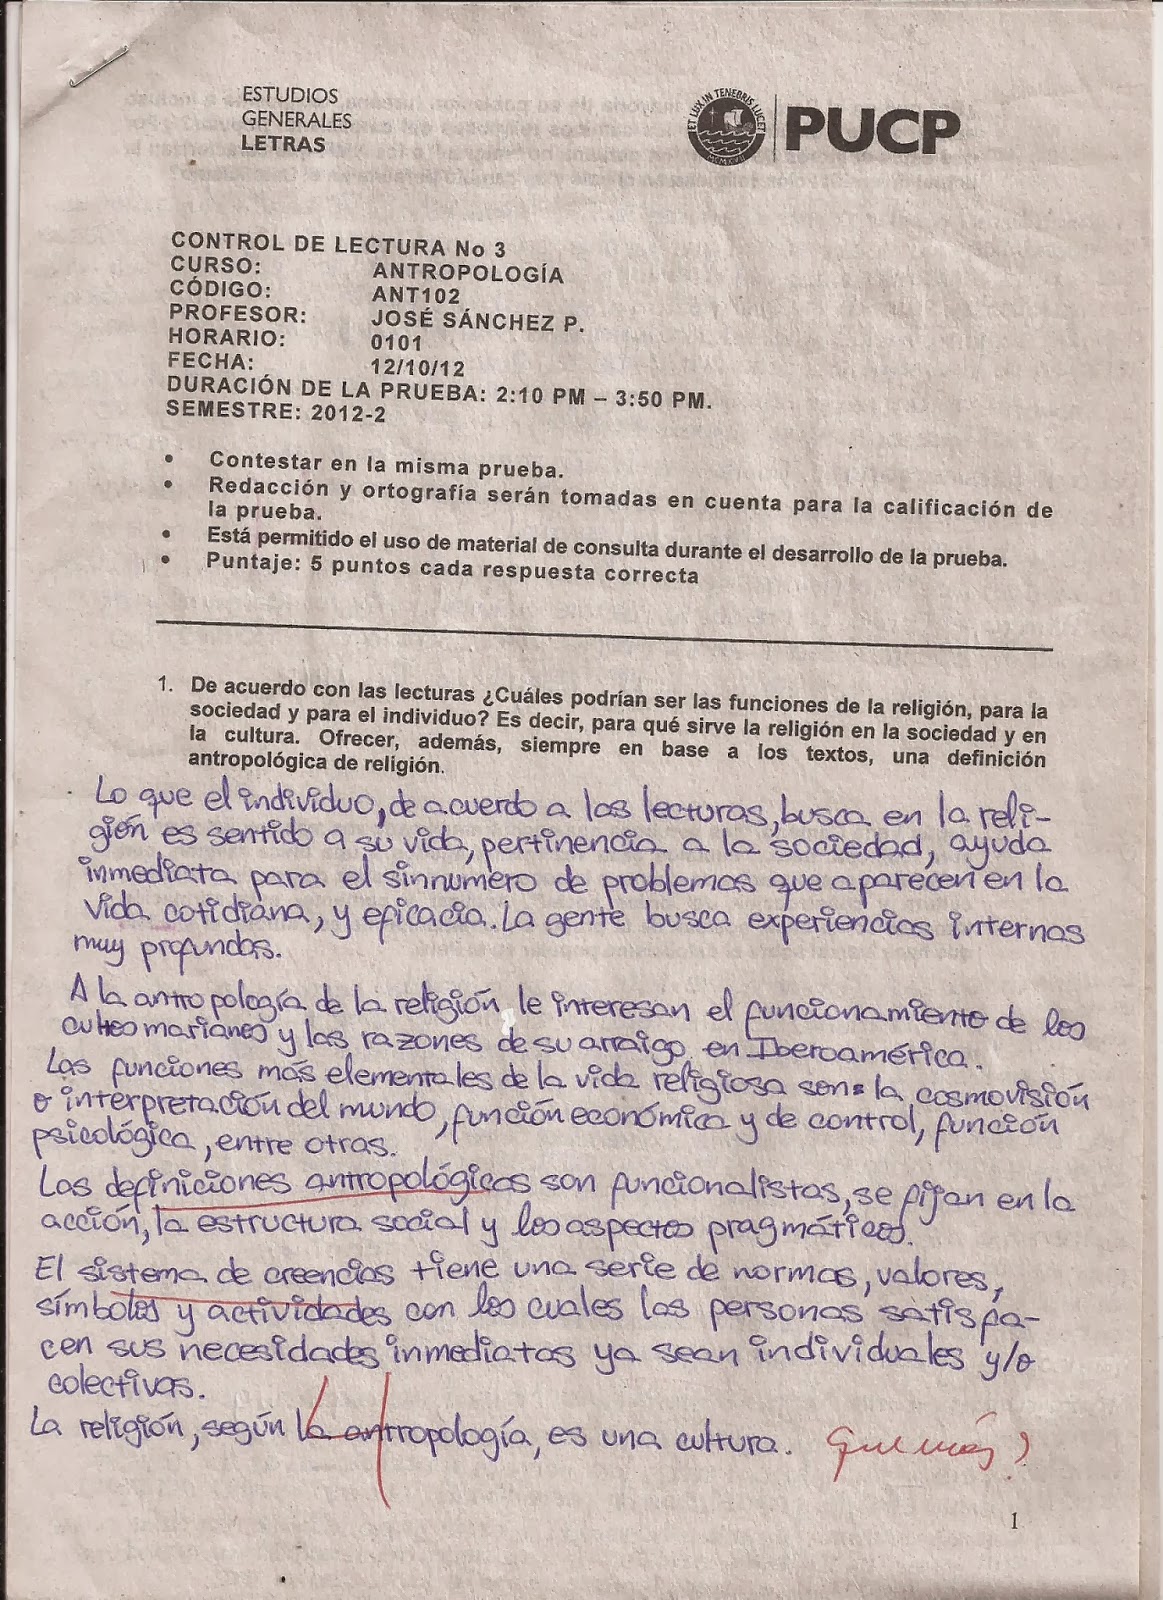 ESTUDIOS
GENERALES
LETRAS
ET LUX IN TENEBRIS LUCET
MCMXVII
PUCP
CONTROL DE LECTURA No 3
CURSO: ANTROPOLOGÍA
CÓDIGO: ANT102
PROFESOR: JOSÉ SÁNCHEZ P.
HORARIO: 0101
FECHA: 12/10/12
DURACIÓN DE LA PRUEBA: 2:10 PM – 3:50 PM.
SEMESTRE: 2012-2
• Contestar en la misma prueba.
• Redacción y ortografía serán tomadas en cuenta para la calificación de
la prueba.
• Está permitido el uso de material de consulta durante el desarrollo de la prueba.
• Puntaje: 5 puntos cada respuesta correcta
1. De acuerdo con las lecturas ¿Cuáles podrían ser las funciones de la religión, para la
sociedad y para el individuo? Es decir, para qué sirve la religión en la sociedad y en
la cultura. Ofrecer, además, siempre en base a los textos, una definición
antropológica de religión.
Lo que el individuo, de acuerdo a las lecturas, busca en la reli-
gión es sentido a su vida, pertinencia a la sociedad, ayuda
inmediata para el sinnumero de problemas que aparecen en la
vida cotidiana, y eficacia. La gente busca experiencias internas
muy profundas.
A la antropología de la religión le interesan el funcionamiento de los
cultos marianos y las razones de su arraigo en Iberoamérica.
Las funciones más elementales de la vida religiosa son: la cosmovisión
o interpretación del mundo, función económica y de control, función
psicológica, entre otras.
Las definiciones antropológicas son funcionalistas, se fijan en la
acción, la estructura social y los aspectos pragmáticos.
El sistema de creencias tiene una serie de normas, valores,
símbolos y actividades con los cuales las personas satisfa-
cen sus necesidades inmediatas ya sean individuales y/o
colectivas.
La religión, según la antropología, es una cultura. Qué más?
4
1